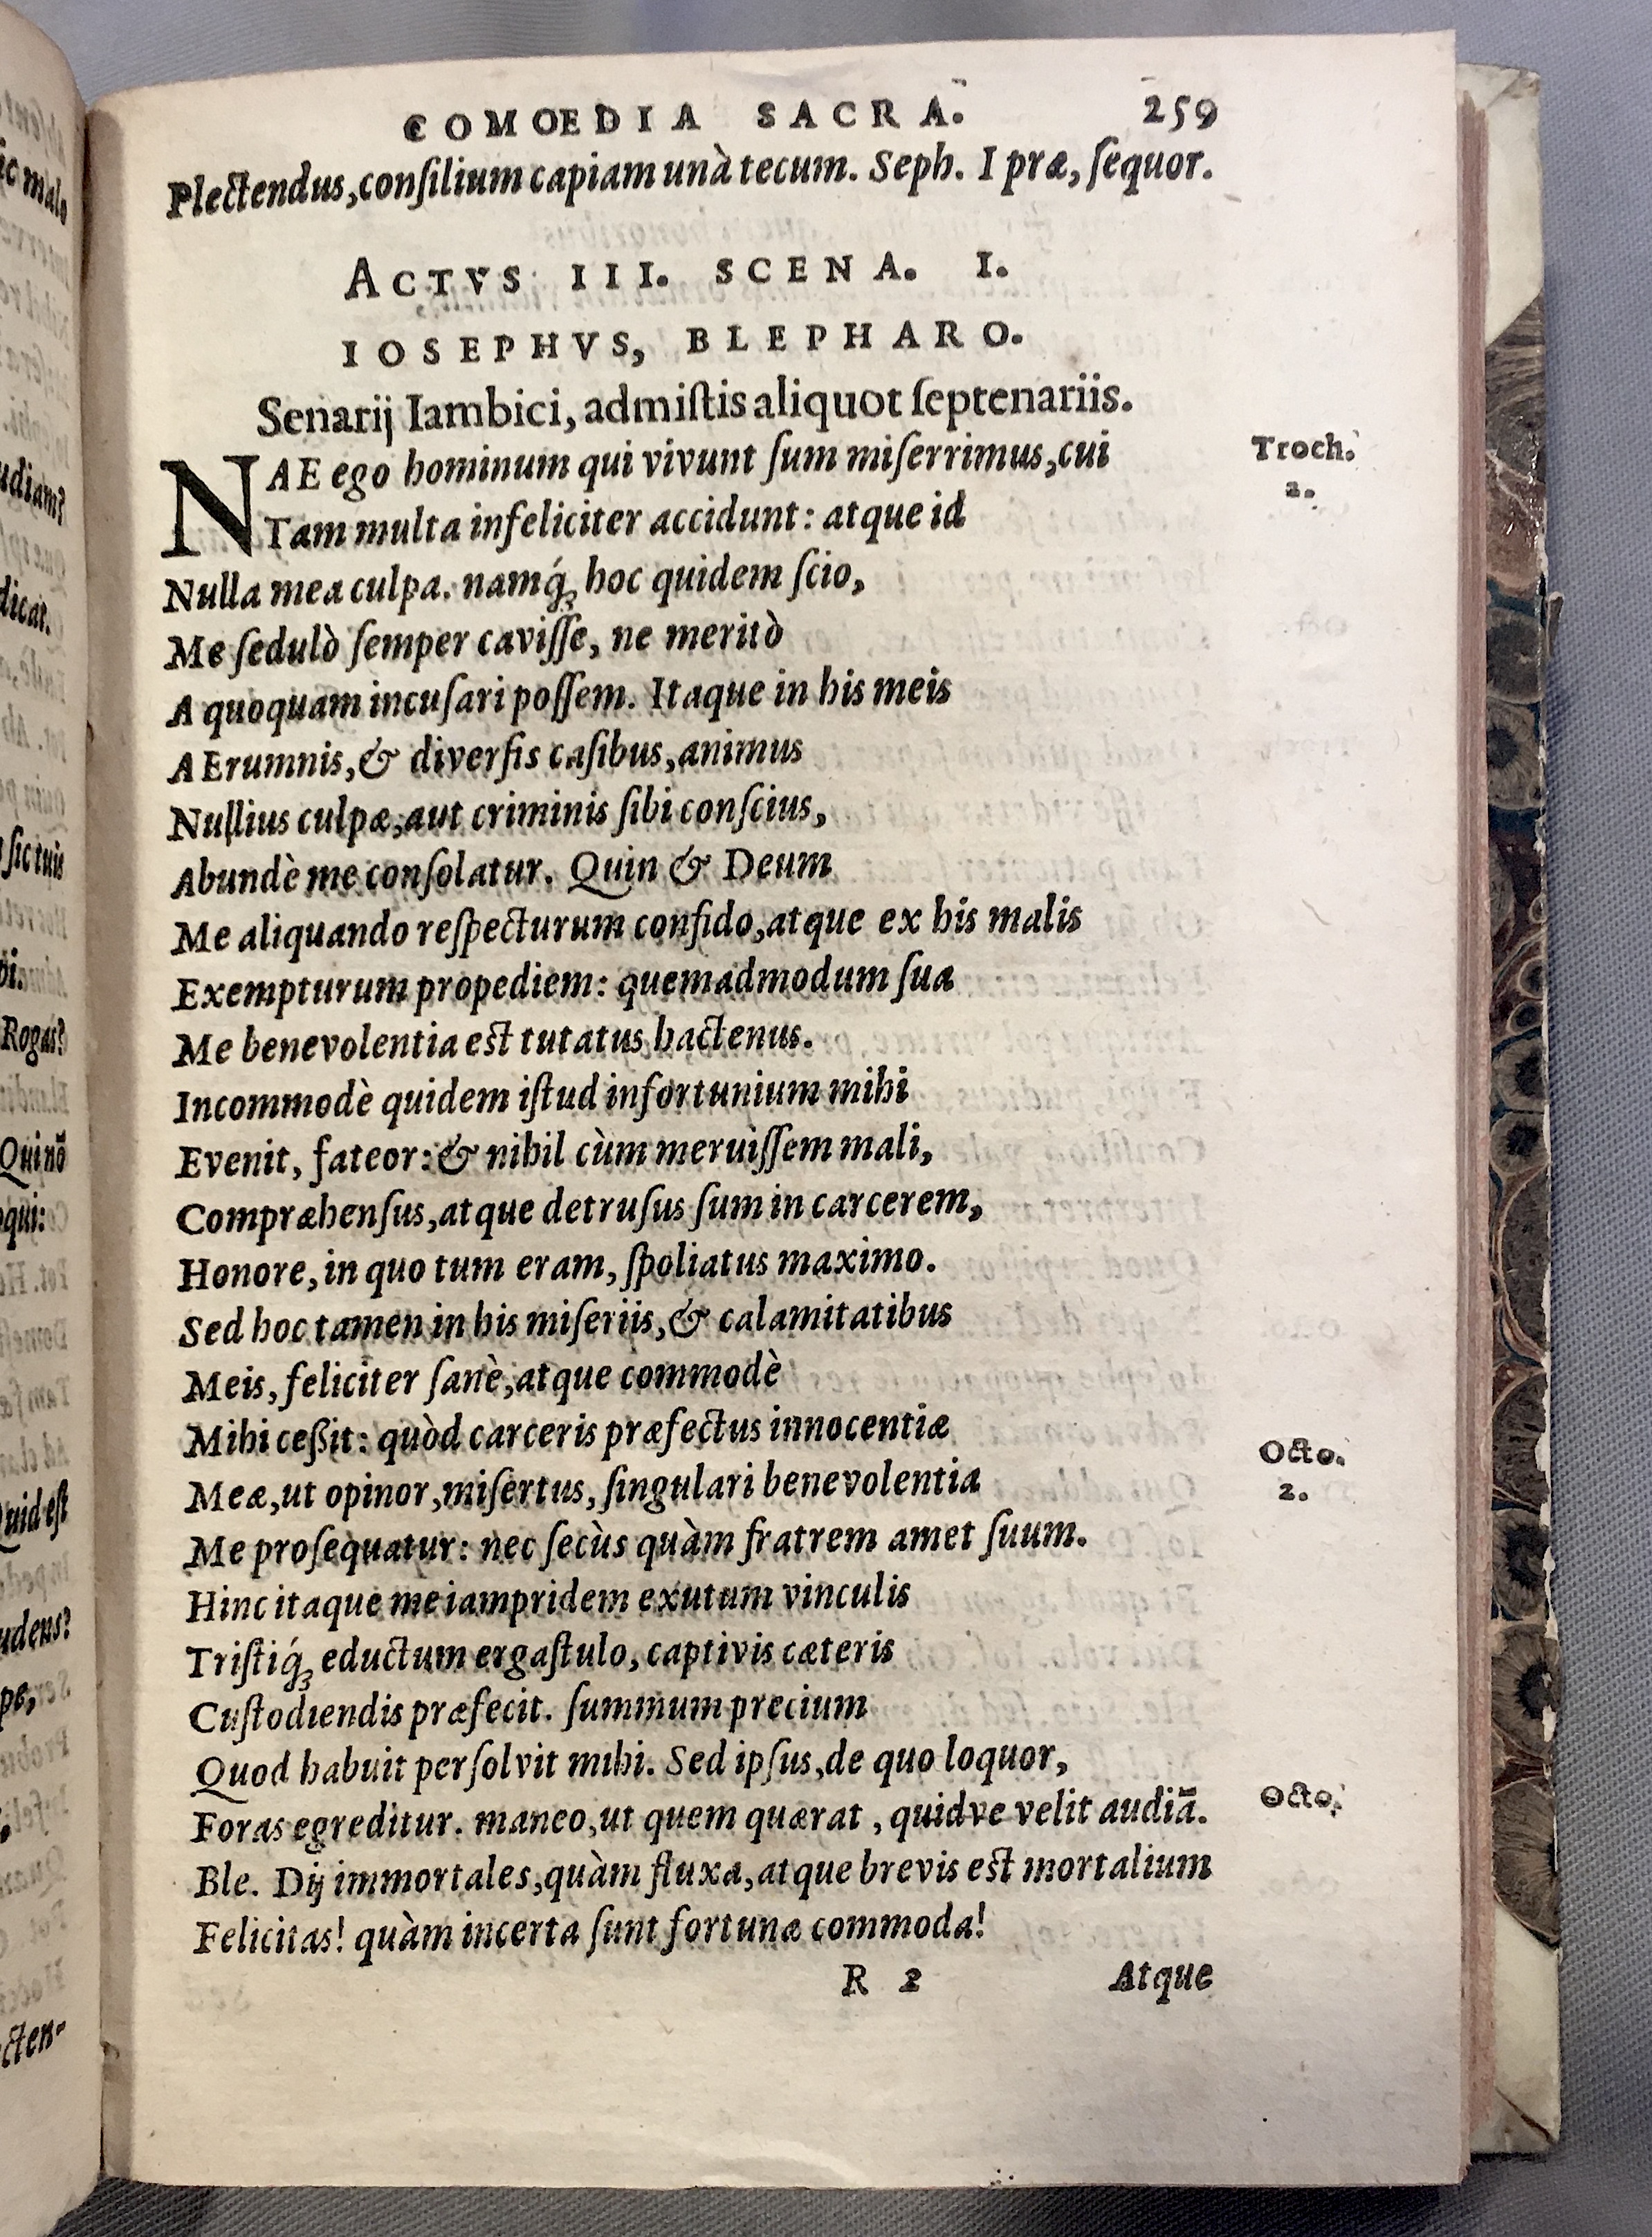 COMOEDIA SACRA. 259
Plectendus, consilium capiam unà tecum. Seph. I præ, sequor.
ACTVS III. SCENA. I.
IOSEPHVS, BLEPHARO.
Senarij Iambici, admistis aliquot septenariis.
NAE ego hominum qui vivunt sum miserrimus, cui
Troch. 2.
Tam multa infeliciter accidunt: atque id
Nulla mea culpa. namq́ꝫ hoc quidem scio,
Me sedulò semper cavisse, ne meritò
A quoquam incusari possem. Itaque in his meis
AErumnis, & diversis casibus, animus
Nullius culpæ, aut criminis sibi conscius,
Abundè me consolatur. Quin & Deum
Me aliquando respecturum confido, atque ex his malis
Exempturum propediem: quemadmodum sua
Me benevolentia est tutatus hactenus.
Incommodè quidem istud infortunium mihi
Evenit, fateor: & nihil cùm meruissem mali,
Compræhensus, atque detrusus sum in carcerem,
Honore, in quo tum eram, spoliatus maximo.
Sed hoc tamen in his miseriis, & calamitatibus
Meis, feliciter sanè, atque commodè
Mihi ceßit: quòd carceris præfectus innocentiæ
Octo. 2.
Meæ, ut opinor, misertus, singulari benevolentia
Me prosequatur: nec secùs quàm fratrem amet suum.
Hinc itaque me iampridem exutum vinculis
Tristiq́ꝫ eductum ergastulo, captivis cæteris
Custodiendis præfecit. summum precium
Quod habuit persolvit mihi. Sed ipsus, de quo loquor,
Foras egreditur. maneo, ut quem quærat, quidve velit audiā.
Octo.
Ble. Dij immortales, quàm fluxa, atque brevis est mortalium
Felicitas! quàm incerta sunt fortunæ commoda!
R 2 Atque